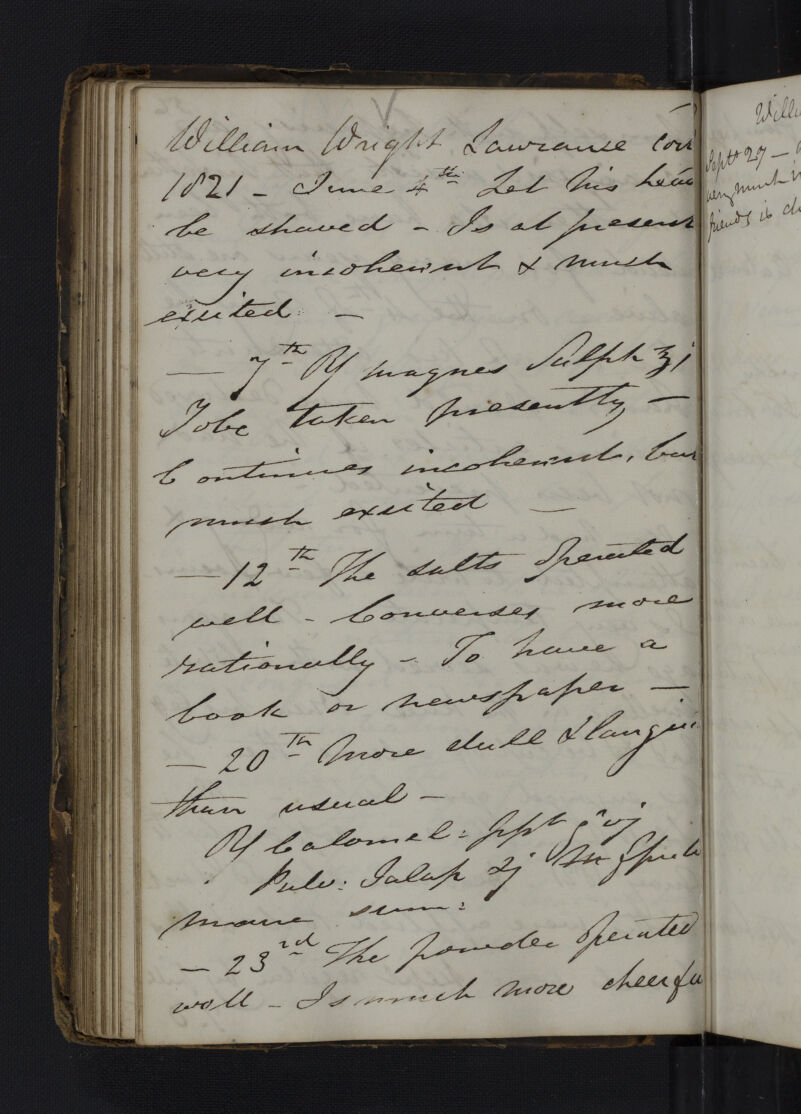 William Wright Lawranse con
1821 - June 4th Let his head
be shaved - Is at present
very incoherent & much
exsited. -
- 7th ℞ magnes Sulph ℥i
To be taken presently, -
Continues incoherent, but
much exsited -
- 12th The salts operated
well - Converses more
rationally - To have a
book or newspaper -
- 20th More dull & langui
than usual -
℞ Calomel: ppt gr vj
Pulv: Jalap ℈j M
mane sum:
- 23rd The powder operated
well - Is much more cheerfu
Willi
Septr 27 -
very much
friends is